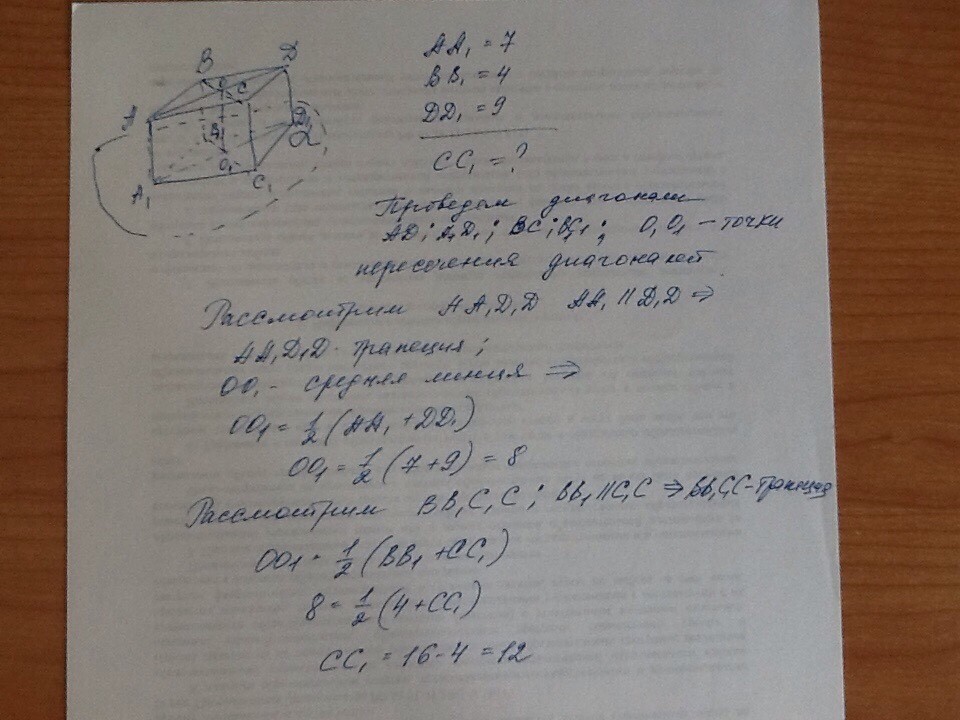 B
D
C
A
B₁
D₁
O₁
A₁
C₁
AA₁ = 7
BB₁ = 4
DD₁ = 9
CC₁ = ?
Проведем диагонали
AD; A₁D₁; BC; BC₁; O, O₁ – точки
пересечения диагоналей
Рассмотрим AA₁D₁D AA₁ || D₁D ⇒
AA₁D₁D - трапеция;
OO₁ - средняя линия ⇒
OO₁ = 1/2 (AA₁ + DD₁)
OO₁ = 1/2 (7+9) = 8
Рассмотрим BB₁C₁C; BB₁ || C₁C ⇒ BB₁C₁C - трапеция
OO₁ = 1/2 (BB₁ + CC₁)
8 = 1/2 (4 + CC₁)
CC₁ = 16 - 4 = 12